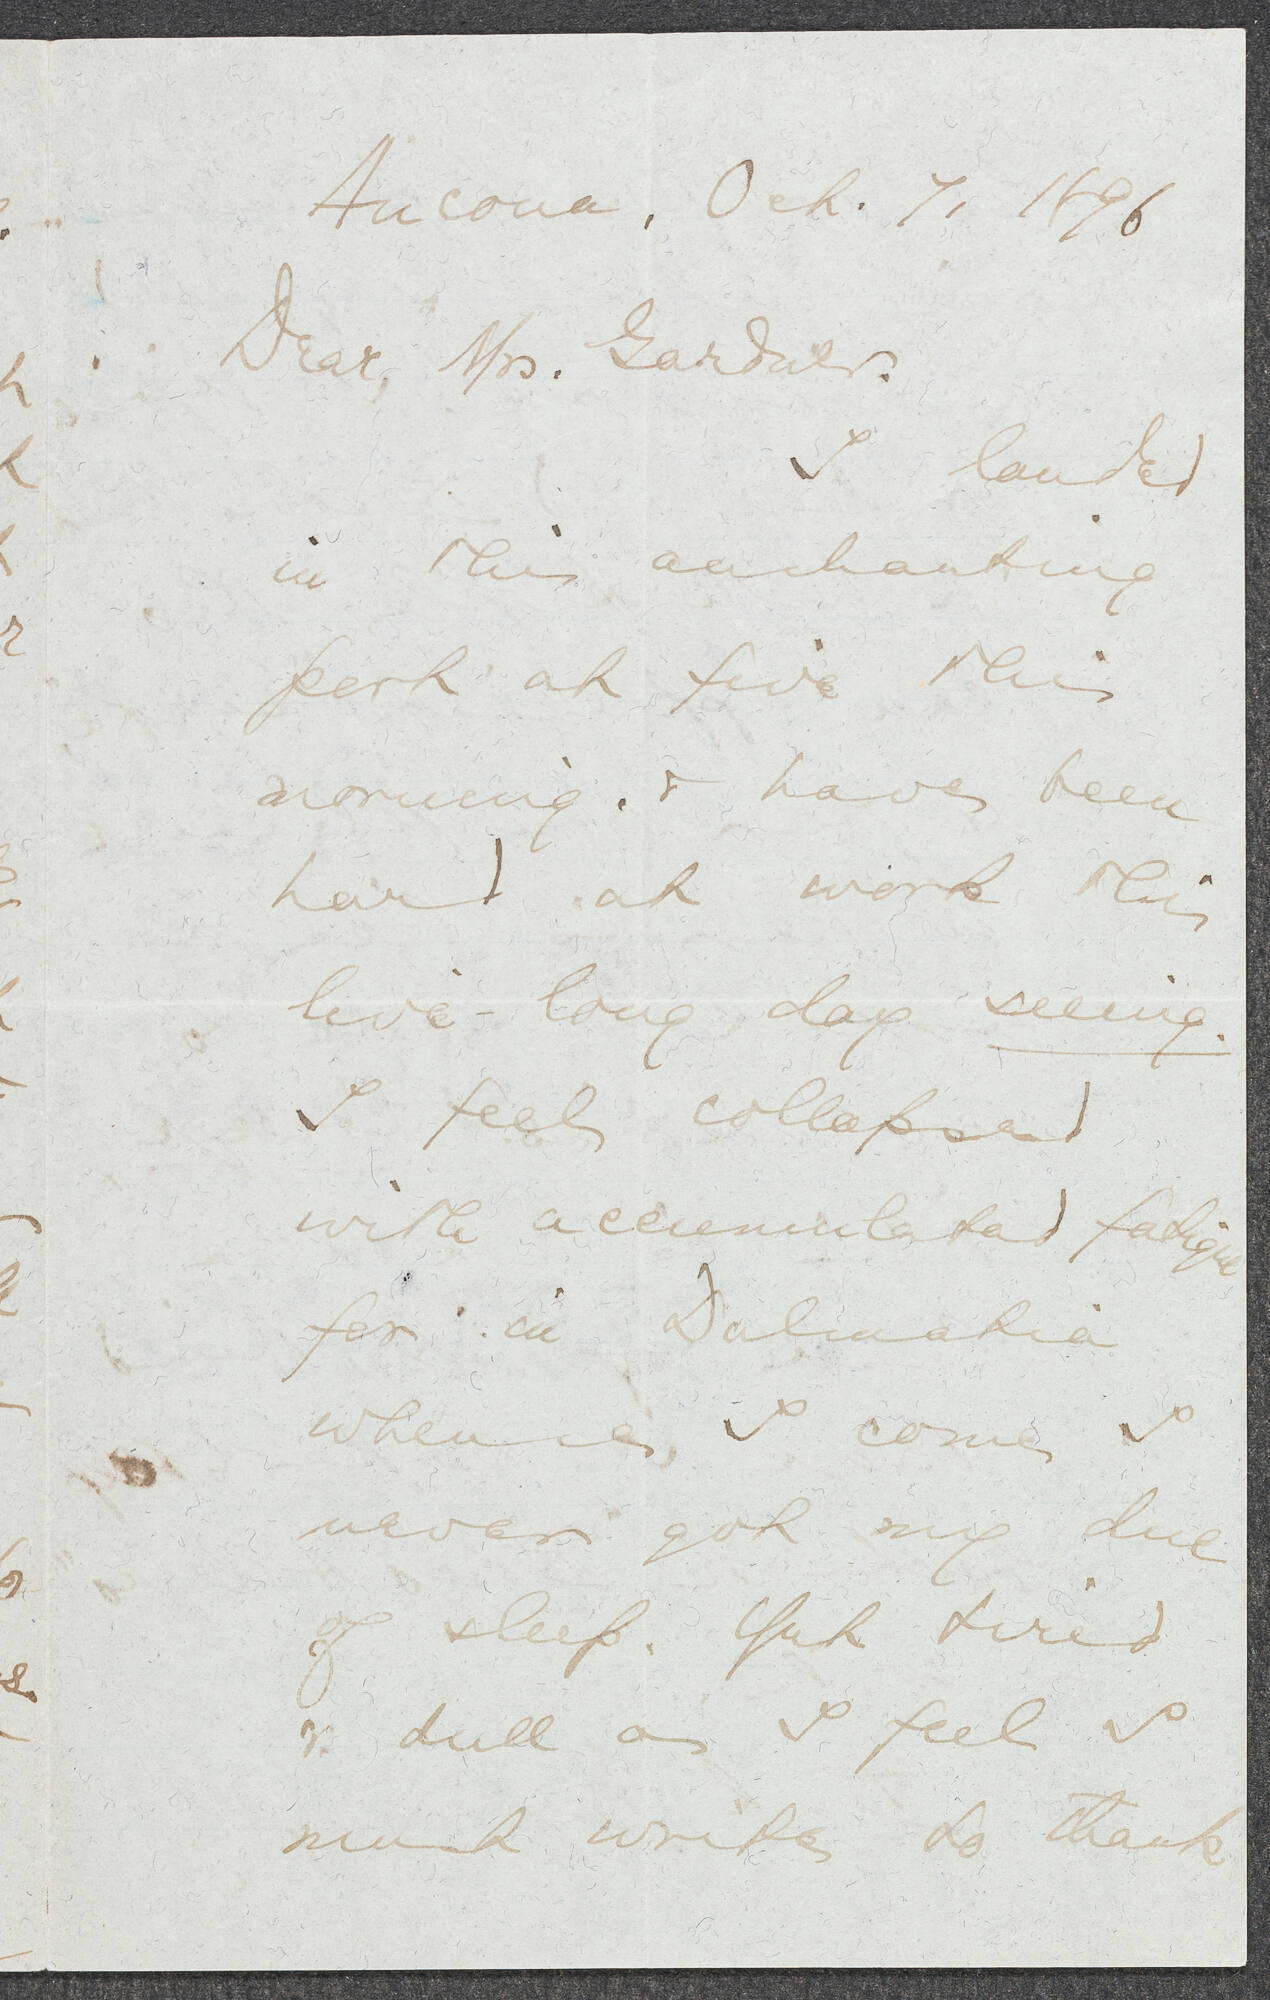 Ancona, Oct. 7, 1896
Dear, Mrs. Gardner.
I landed
in this enchanting
port at five this
morning. & have been
hard at work this
live-long day seeing.
I feel collapsed
with accumulated fatigue
for in Dalmatia
whence, I come I
never got my due
of sleep. Yet tired
& dull as I feel I
must write to thank